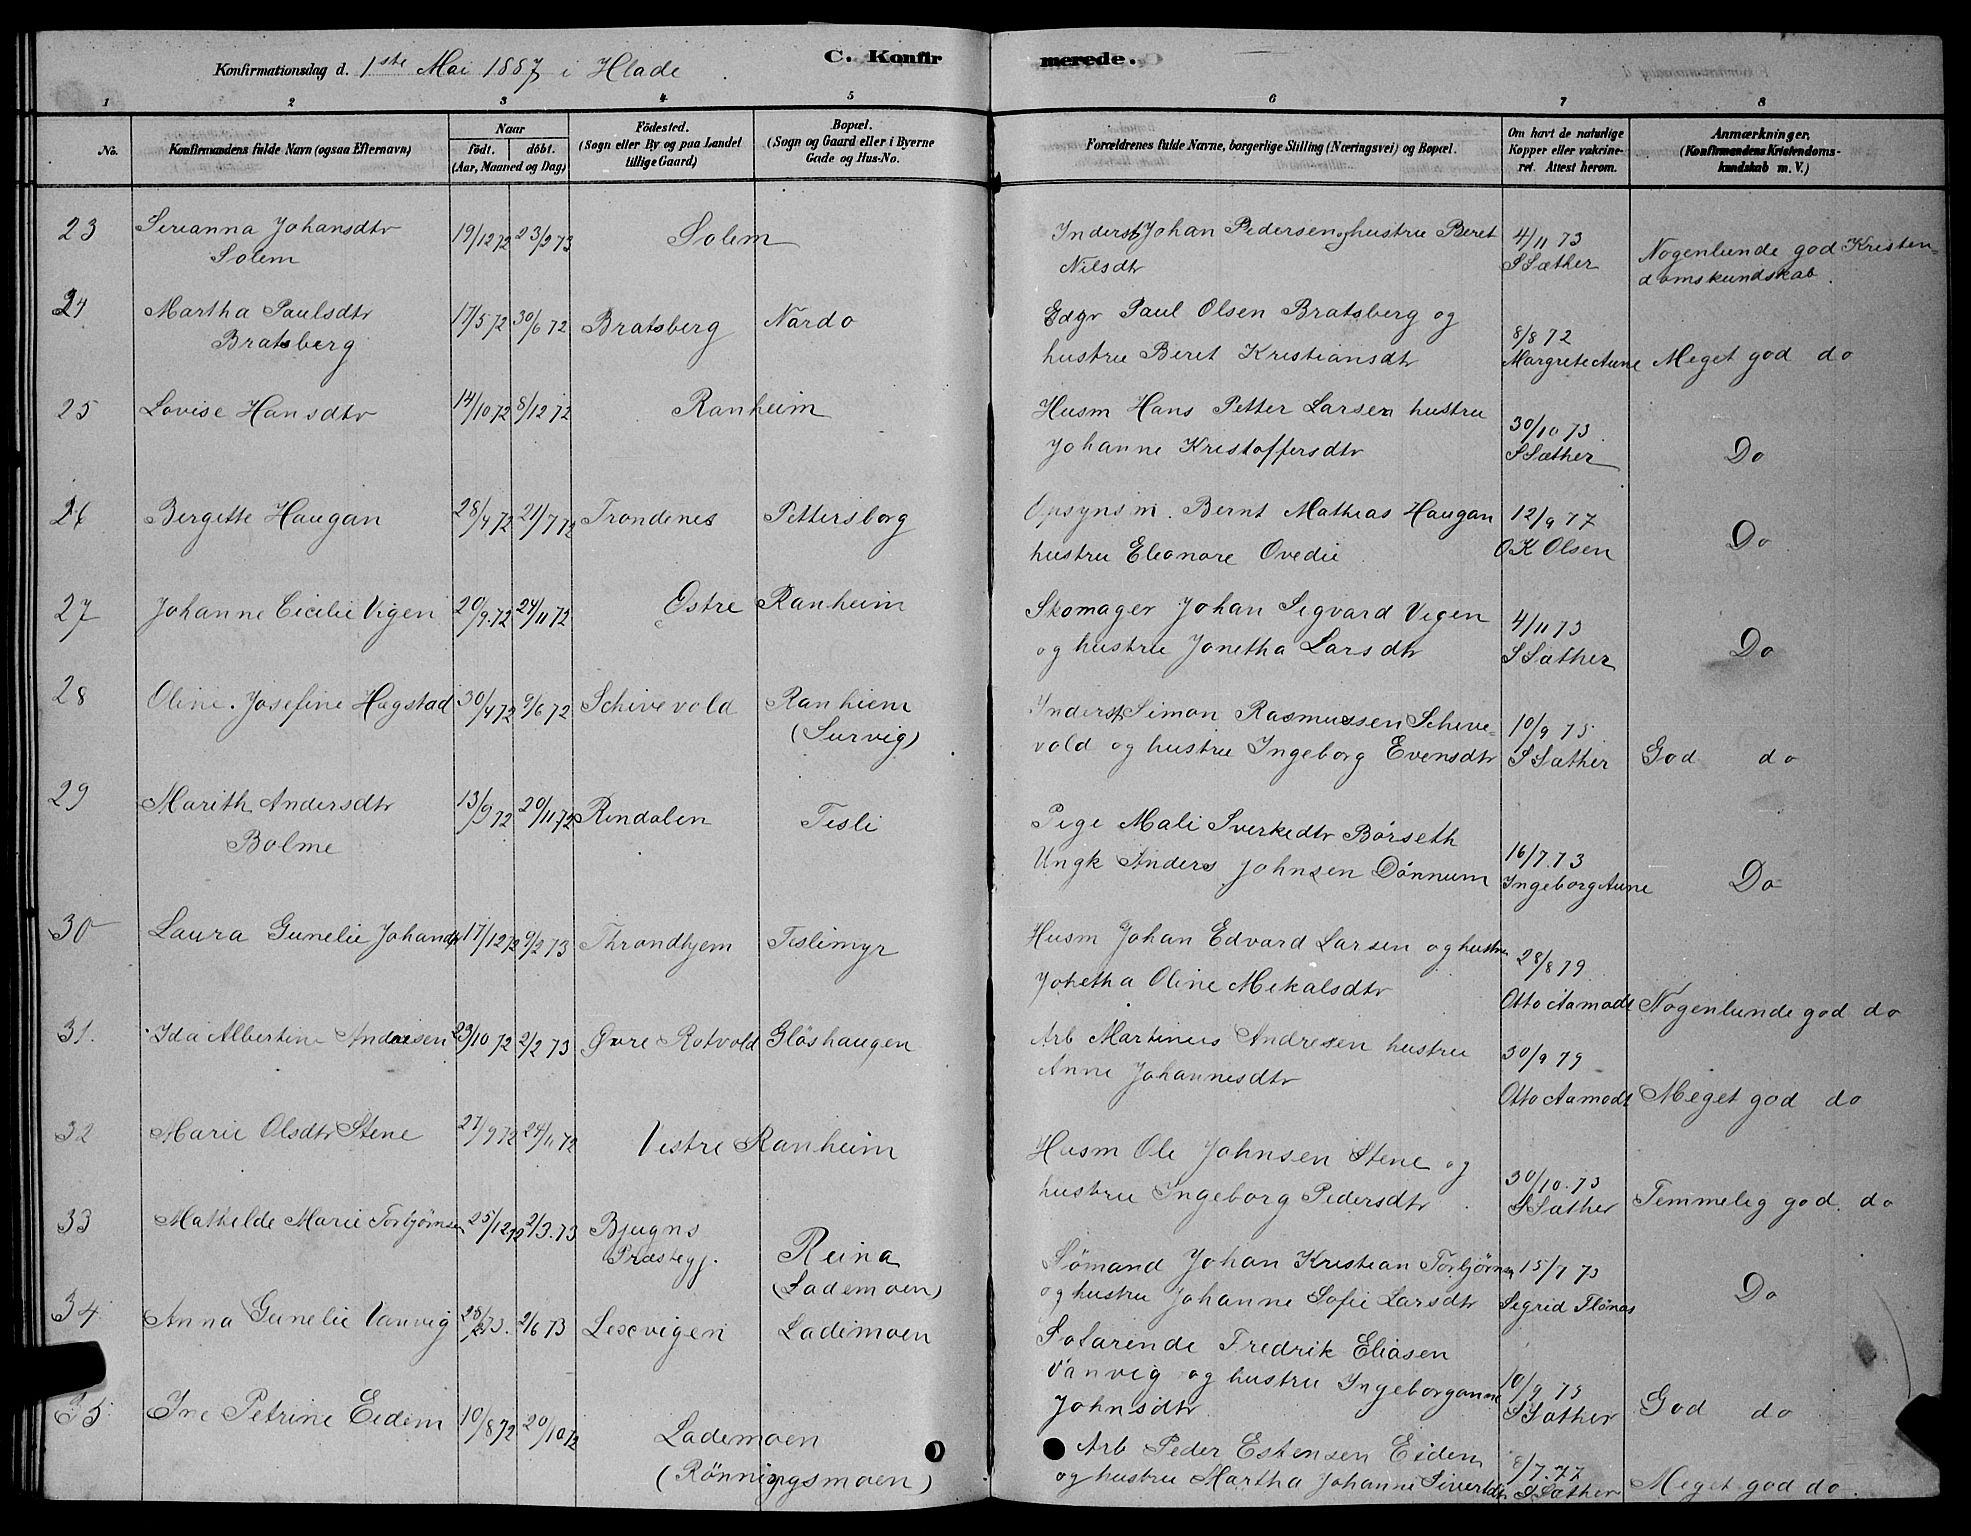 Konfirmationsdag d. 1ste Mai 1887 i Hlade
C. Konfirmerede.
1 2 3 4 5 6 7 8
No.
Konfirmandens fulde Navn (ogsaa Efternavn)
Naar
födt. döbt.
(Aar, Maaned og Dag)
Födested.
(Sogn eller By og paa Landet
tillige Gaard)
Bopæl.
(Sogn og Gaard eller i Byerne
Gade og Hus-No.
Forældrenes fulde Navne, borgerlige Stilling (Næringsvei) og Bopæl.
Om havt de naturlige
Kopper eller vakcine-
ret. Attest herom.
Anmærkninger.
(Konfirmandens Kristendoms-
kundskab m. V.)
23 Serianna Johansdtr 19/12 72 23/2 73 Solem Inderst Johan Pedersen og hustru Beret 4/11 73
Solem Nilsdtr S Sæther Nogenlunde god Kristen-
domskundskab.
24 Martha Paulsdtr 17/5 72 30/6 72 Bratsberg Nardo Edgr Paul Olsen Bratsberg og 8/8 72
Bratsberg hustru Beret Kristiansdtr Margrete Aune Meget god do
25 Lovise Hansdtr 14/10 72 8/12 72 Ranheim Husm Hans Petter Larsen hustru 30/10 73
Johanne Kristoffersdtr S Sæther Do
26 Bergette Haugan 28/4 72 21/7 72 Trondenes Pettersborg Opsynsm. Bernt Mathias Haugan 12/9 77
hustru Eleonore Ovedie O K Olsen Do
27 Johanne Cicilie Vigen 20/9 72 24/11 72 Østre Ranheim Skomager Johan Sigvard Vigen 4/11 73
og hustru Jonetha Larsdtr S Sæther Do
28 Oline Josefine Hagstad 30/4 72 9/6 72 Schivevold Ranhiem Inderst Simon Rasmussen Schive- 10/9 75
(Survig) vold og hustru Ingeborg Evensdtr S Sæther God do
29 Marith Andersdtr 13/9 72 20/11 72 Rindalen Tesli Pige Mali Sverkedtr Börseth 16/7.73
Bolme Ungk Anders Johnsen Dönnum Ingeborg Aune Do
30 Laura Gunelie Johansdtr 17/12 72 9/2 73 Throndhjem Teslimyr Husm Johan Edvard Larsen og hustru 28/8 79
Johetha Oline Mekalsdtr Otto Aamodt Nogenlunde god do
31. Ida Albertine Andresen 23/10 72 2/2 73 Øvre Rotvold Glöshaugen Arb Martinus Andresen hustru 30/9 79
Anne Johannesdtr Otto Aamodt Meget god do
32 Marie Olsdtr Stene 27/9 72 24/11 72 Vestre Ranheim Husm Ole Johnsen Stene og 30/10.73
hustru Ingeborg Pedersdtr S Sæther Temmelig god do
33 Mathilde Marie Torbjörnsen 25/12 72 2/3.73 Bjugns Reina Sömand Johan Kristian Torbjörnsen 15/7 73
Præstegj. (Lademoen) og hustru Johanne Sofie Larsdtr Sigrid Flönæs Do
34 Anna Gunelie Vanvig 28/2 73. 2/6 73 Lexevigen Lademoen Solarende Fredrik Eliasen
Vanvig og hustru Ingeborganna 10/9 75
Johnsdtr S Sæther God do
35 Ine Petrine Eidem 10/8 72 20/10 72 Lademoen Arb Peder Estensen Eidem 8/7.77
(Rönningsmoen) og hustru Martha Johanne Sivertdtr S Sæther Meget god do.